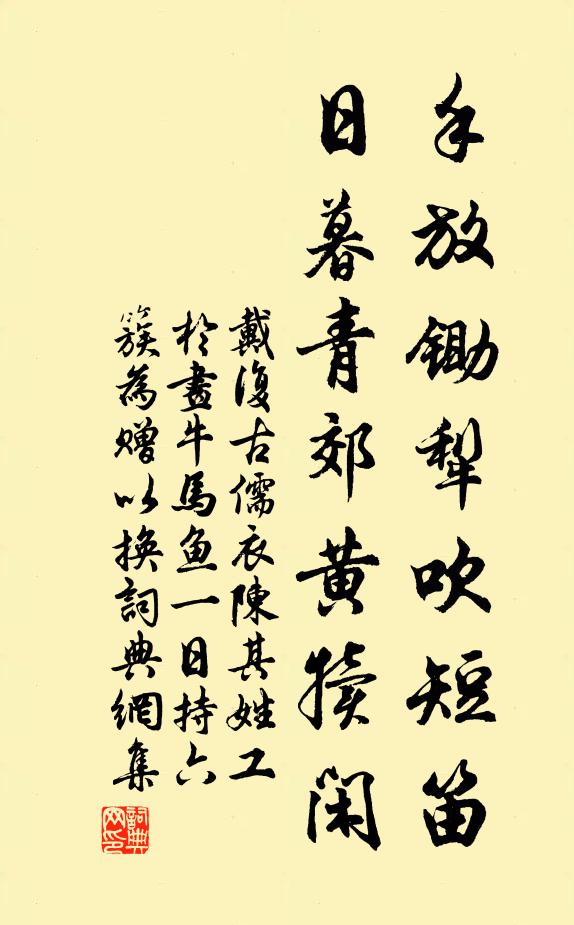 手放鋤犁吹短笛
日暮青郊黄犢閑
戴復古儒衣陳其姓工
於畫牛馬魚一日持六
簇為贈以換詞典網集
詞典
网印